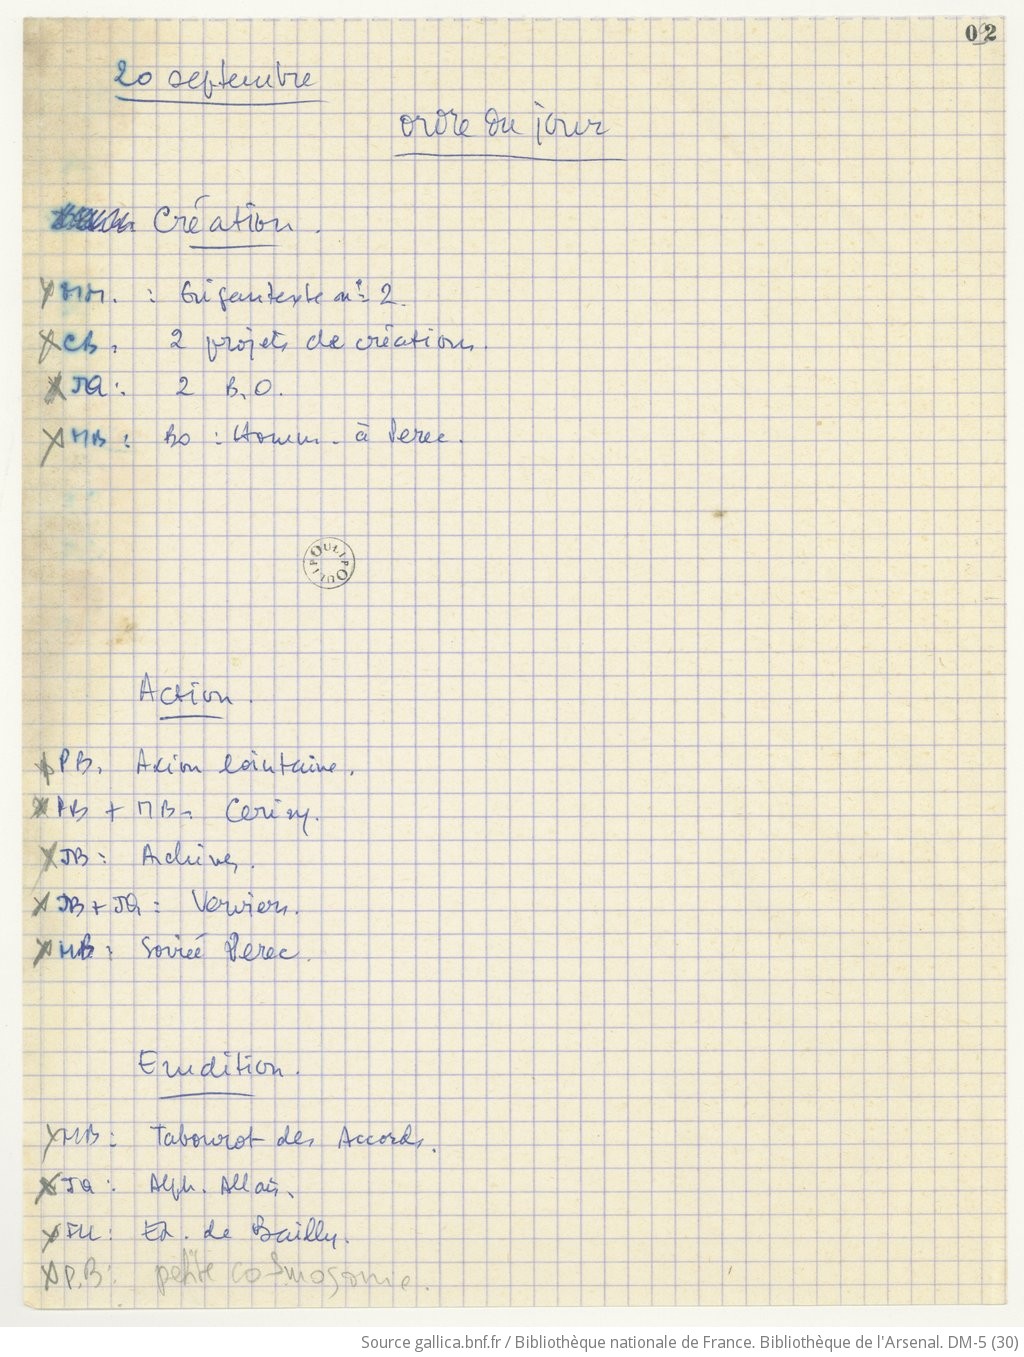 02
20 septembre
ordre du jour
Création.
MM. : Gigantexte n° 2.
CB. 2 projets de créations.
JQ : 2 B.O.
MB : BO : Homm. à Perec.
OULIPO OULIPO
Action.
PB. Axion lointaine.
PB + MB. Cerisy.
JB : Archives.
JB + JQ : Verviers.
MB : Soirée Perec.
Erudition.
MB : Tabourot des Accords.
JQ : Alph. Allais.
FLL : Ed. de Bailly.
P.B : petite cosmogonie.
Source gallica.bnf.fr / Bibliothèque nationale de France. Bibliothèque de l'Arsenal. DM-5 (30)